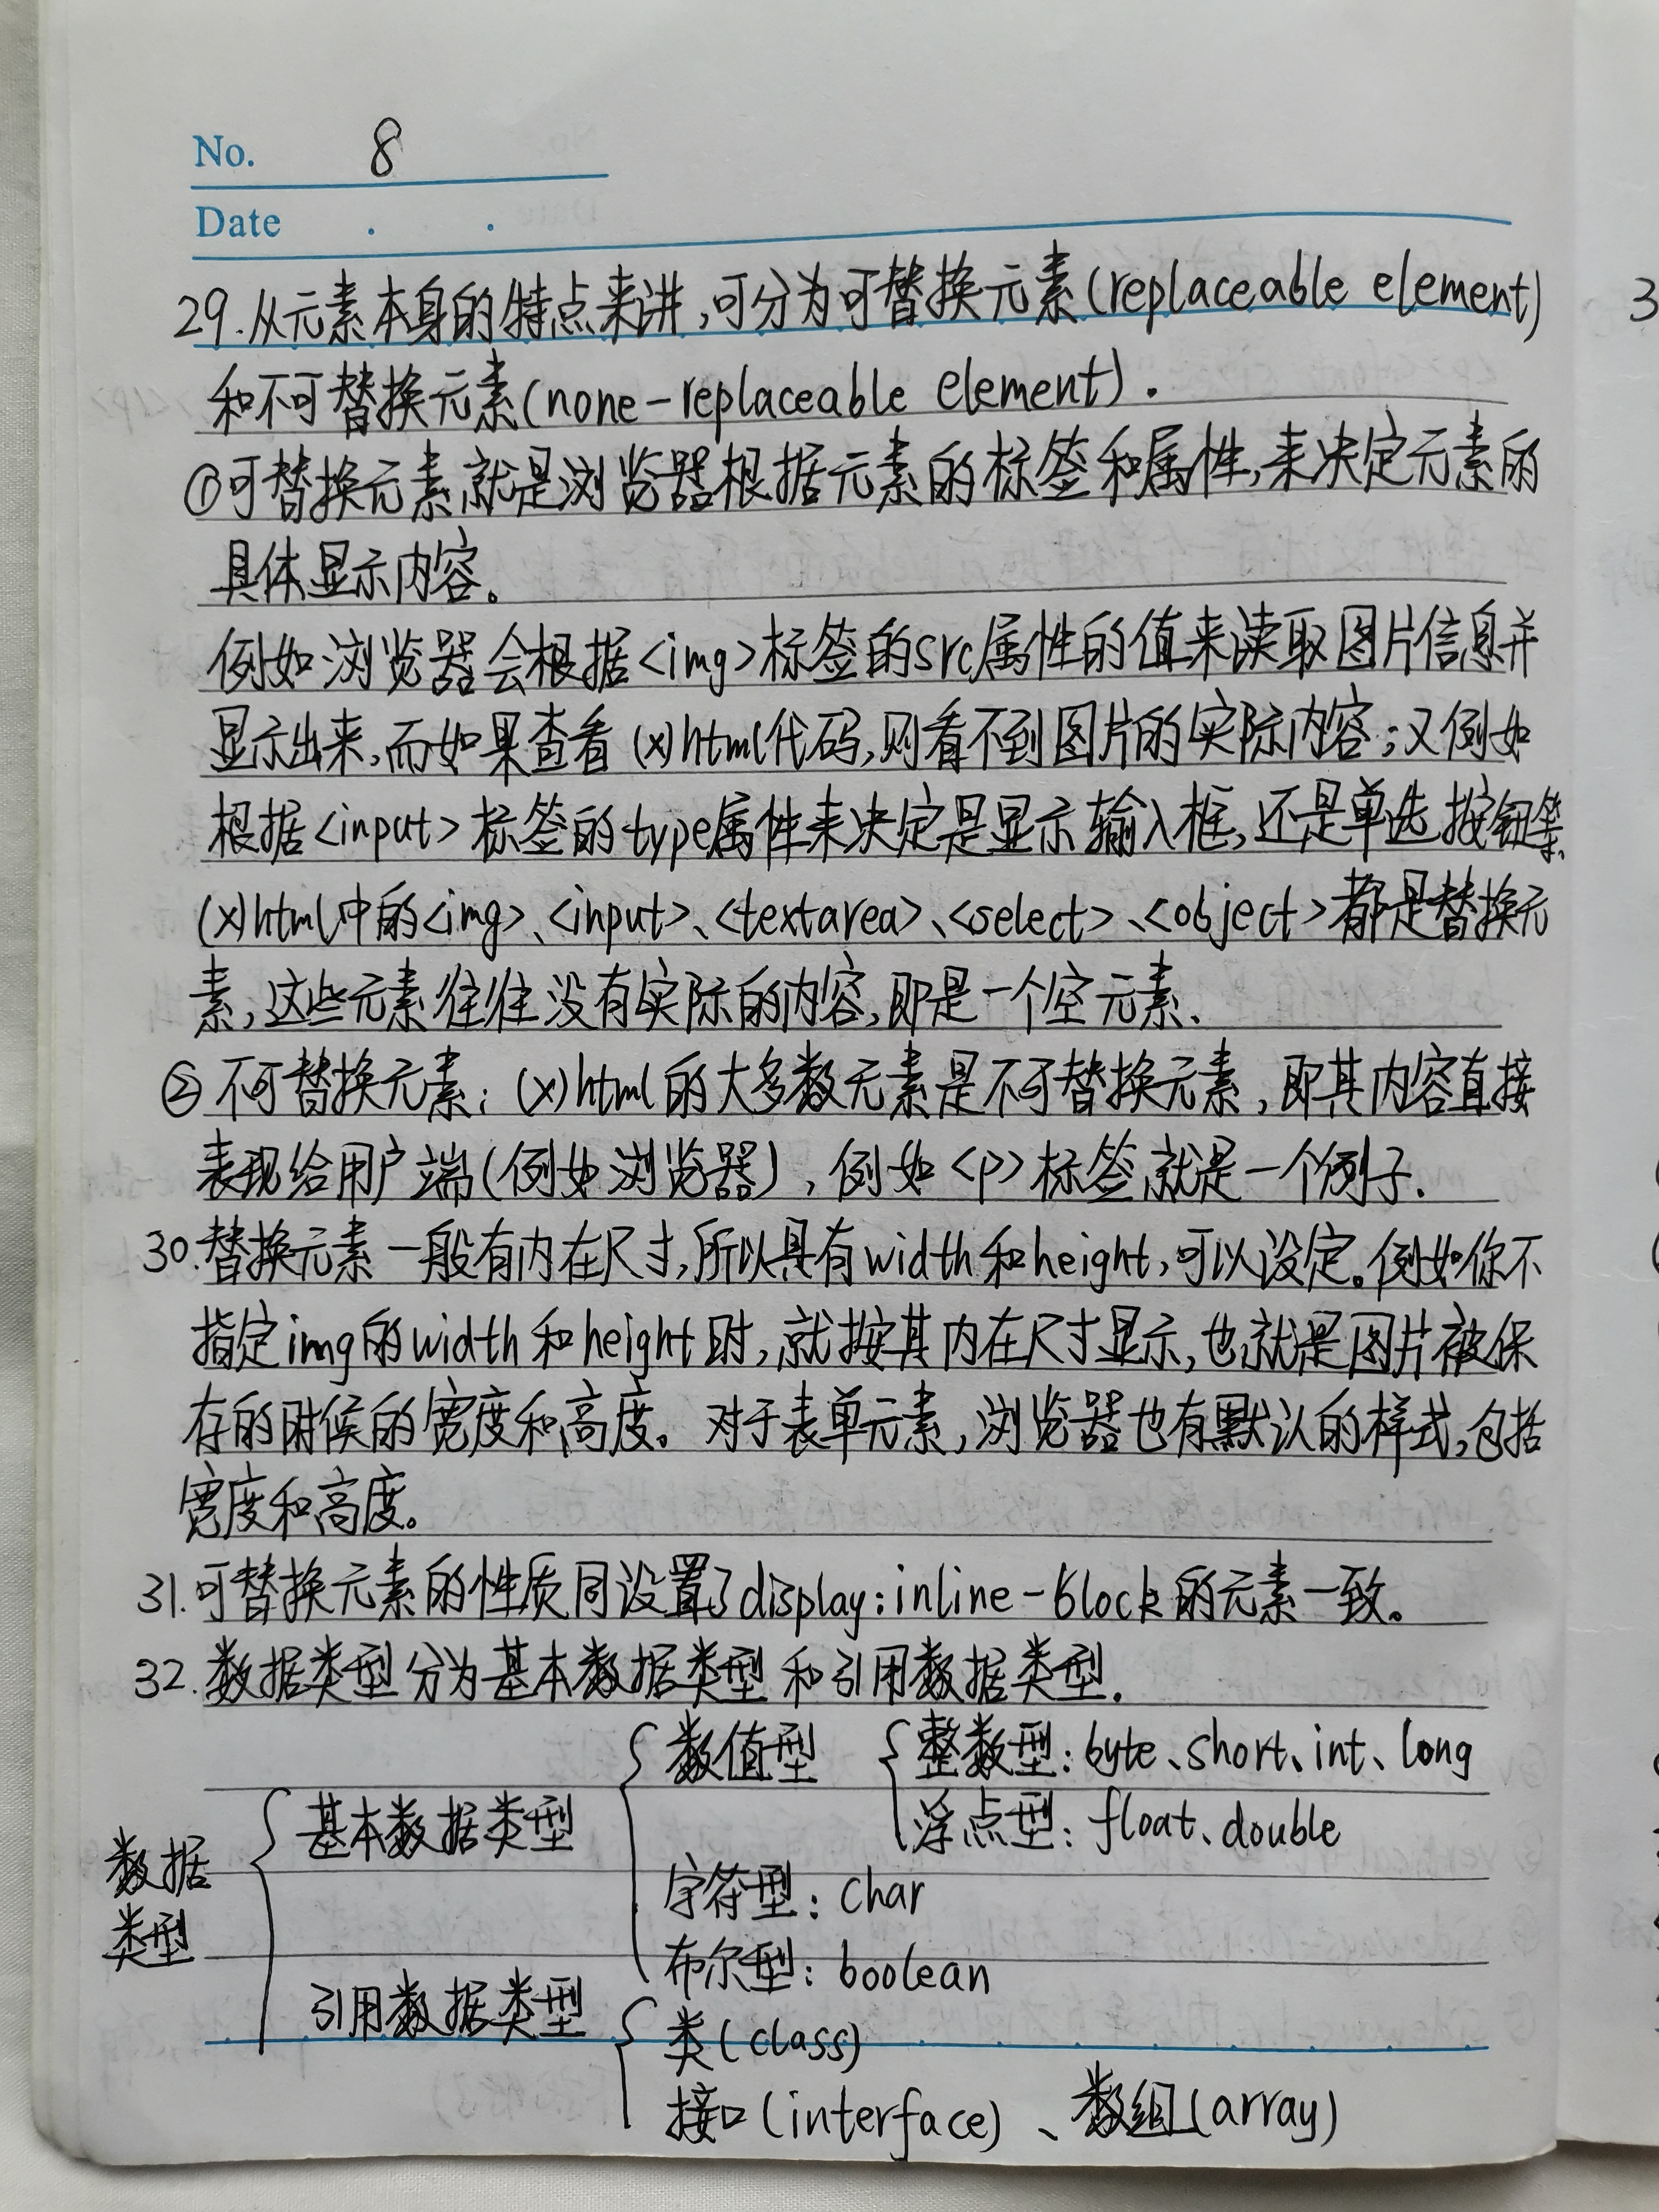 No. 8
Date . .
29.从元素本身的特点来讲,可分为可替换元素(replaceable element)
和不可替换元素(none-replaceable element).
①可替换元素就是浏览器根据元素的标签和属性,来决定元素的
具体显示内容。
例如浏览器会根据<img>标签的src属性的值来读取图片信息并
显示出来,而如果查看(x)html代码,则看不到图片的实际内容;又例如
根据<input>标签的type属性来决定是显示输入框,还是单选按钮等.
(x)html中的<img>、<input>、<textarea>、<select>、<object>都是替换元
素,这些元素往往没有实际的内容,即是一个空元素.
②不可替换元素:(x)html的大多数元素是不可替换元素,即其内容直接
表现给用户端(例如浏览器),例如<p>标签就是一个例子.
30.替换元素一般有内在尺寸,所以具有width和height,可以设定。例如你不
指定img的width和height时,就按其内在尺寸显示,也就是图片被保
存的时候的宽度和高度。对于表单元素,浏览器也有默认的样式,包括
宽度和高度。
31.可替换元素的性质同设置了display:inline-block的元素一致。
32.数据类型分为基本数据类型和引用数据类型.
数值型 整数型:byte、short、int、long
基本数据类型 浮点型:float、double
数据
类型
字符型:char
布尔型:boolean
引用数据类型
类(class)
接口(interface)、数组(array)
3